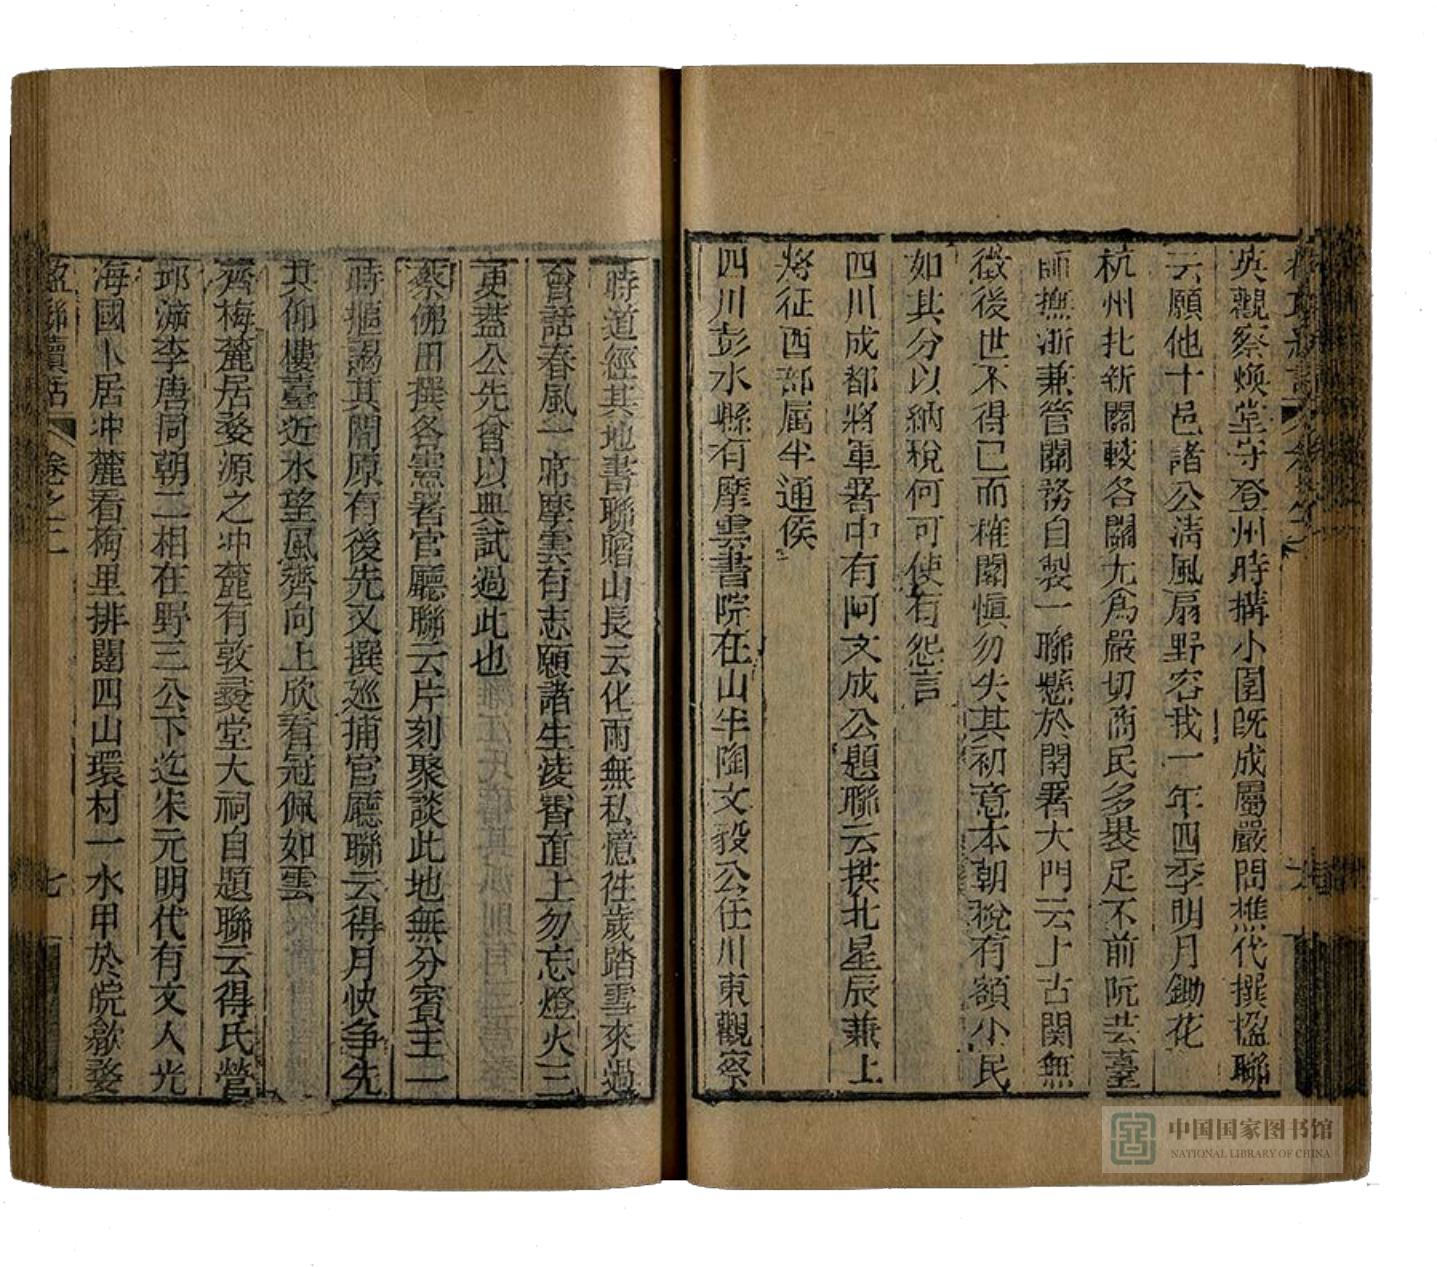 英觀察煥堂守登州時搆小園旣成屬嚴問樵代撰楹聯
云願他十邑諸公淸風扇野容我一年四季明月鋤花
杭州北新關較各關尤爲嚴切商民多裹足不前阮芸臺
師撫浙兼管關務自製一聯懸於關署大門云上古關無
徵後世不得已而榷關愼勿失其初意本朝稅有額小民
如其分以納稅何可使有怨言
四川成都將軍署中有阿文成公題聯云拱北星辰兼上
將征西部屬半通侯
四川彭水縣有摩雲書院在山半陶文毅公任川東觀察
時道經其地書聯贈山長云化雨無私憶往歲踏雪來過
曾話春風一席摩雲有志願諸生凌霄直上勿忘燈火三
更蓋公先曾以典試過此也
蔡佛田撰各憲署官廳聯云片刻聚談此地無分賓主一
時摳謁其間原有後先又撰巡捕官廳聯云得月快爭先
共仰樓臺近水望風齊向上欣看冠佩如雲
齊梅麓居婺源之冲麓有敦彝堂大祠自題聯云得氏營
邱溯李唐同朝二相在野三公下迄宋元明代有文人光
海國卜居冲麓看梅里排闥四山環村一水甲於皖歙婺
楹聯續話 卷之二 七
中国国家图书馆
NATIONAL LIBRARY OF CHINA